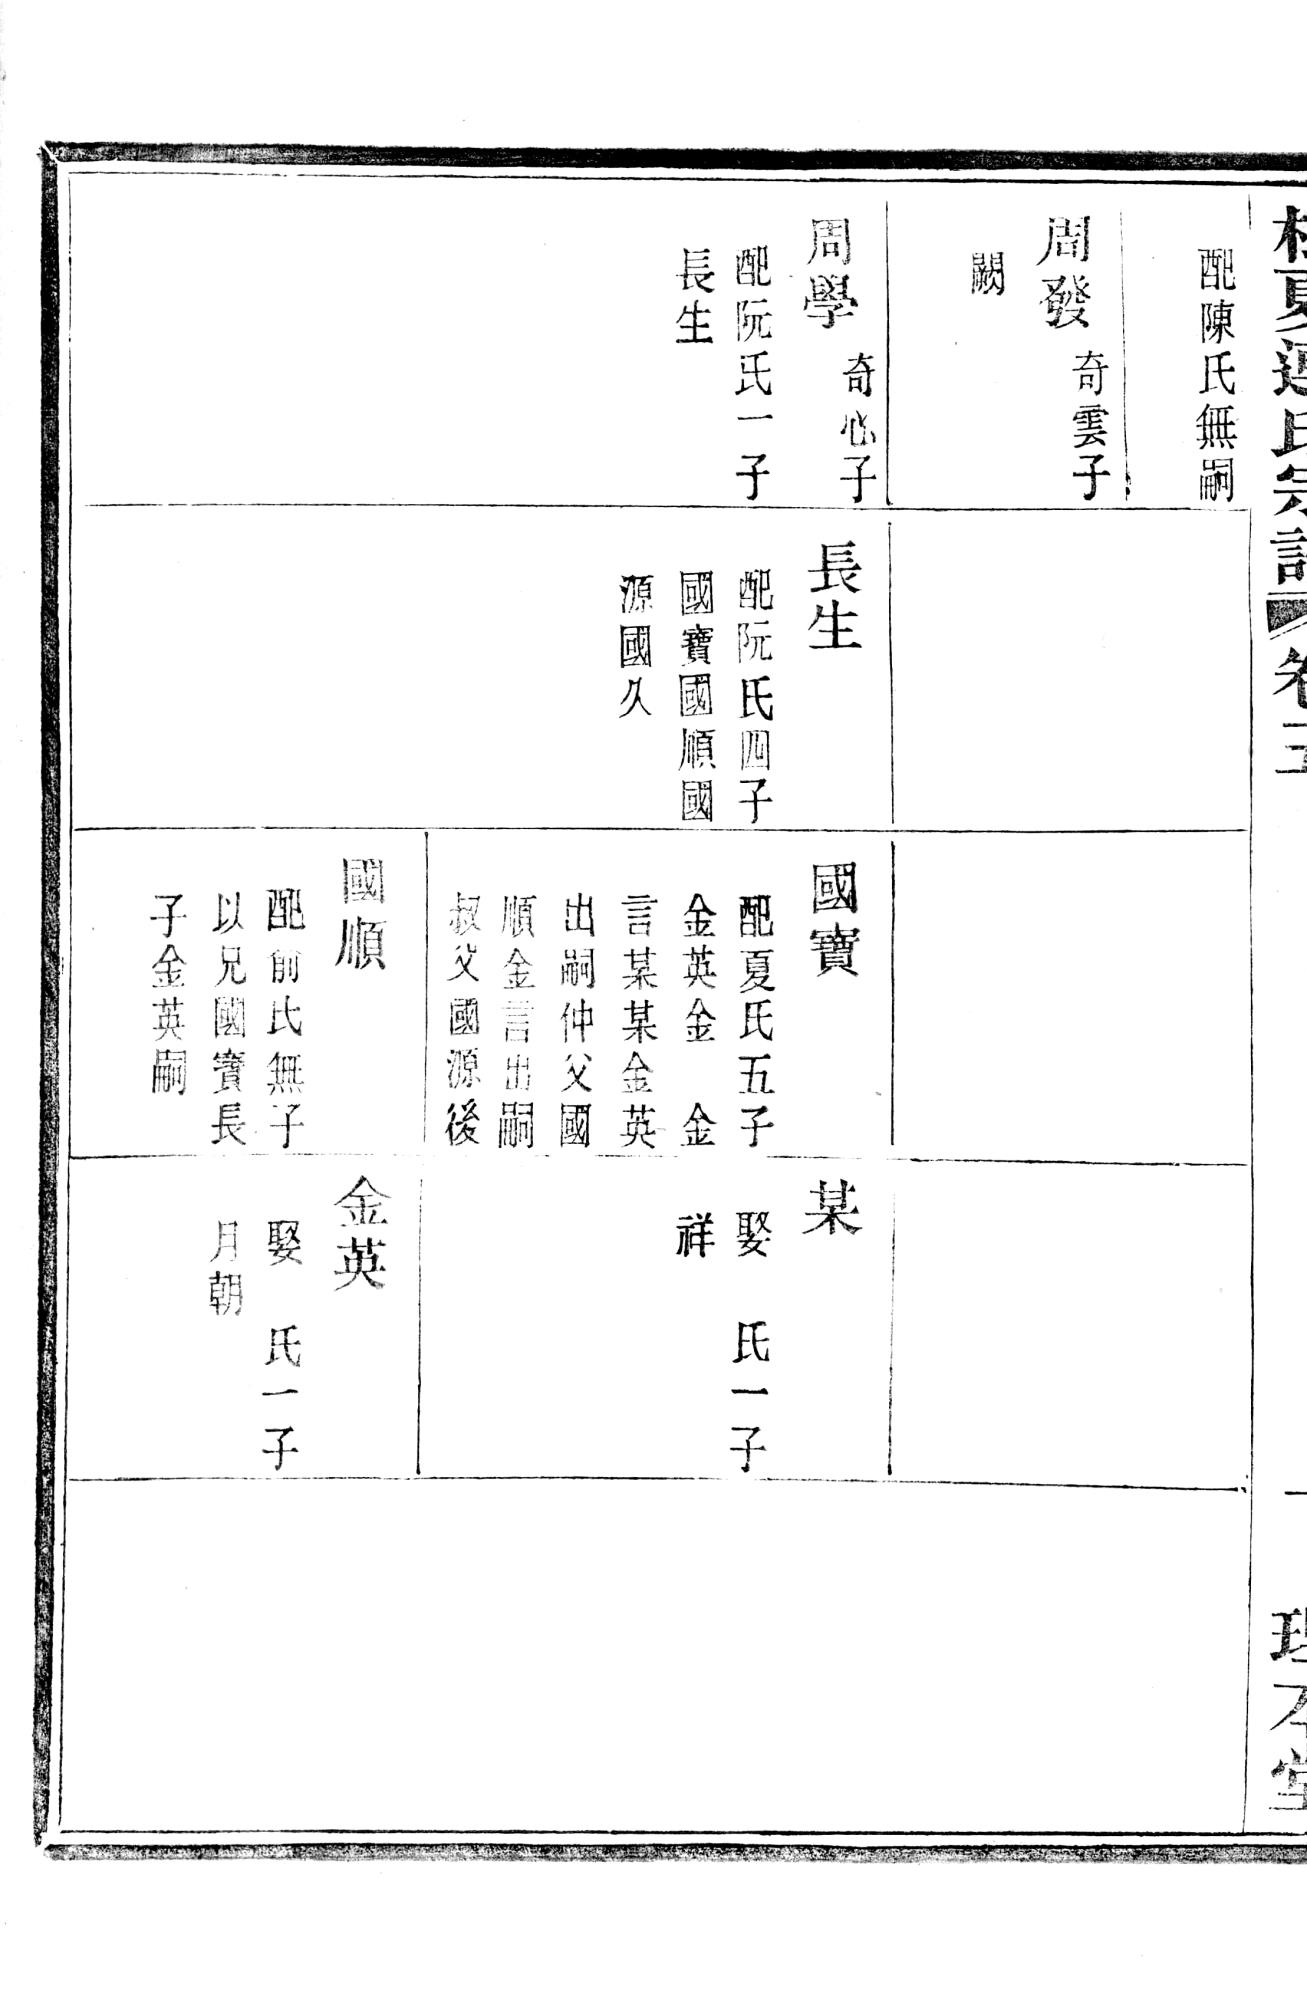 氏宗譜 卷
本堂
配陳氏無嗣
周發 奇雲子
闕
周學 奇心子
配阮氏一子
長生
長生
配阮氏四子
國寶國順國
源國久
國寶
配夏氏五子
金英金 金
言某某金英
出嗣仲父國
順金言出嗣
叔父國源後
國順
配俞氏無子
以兄國寶長
子金英嗣
某
娶 氏一子
祥
金英
娶 氏一子
月朝